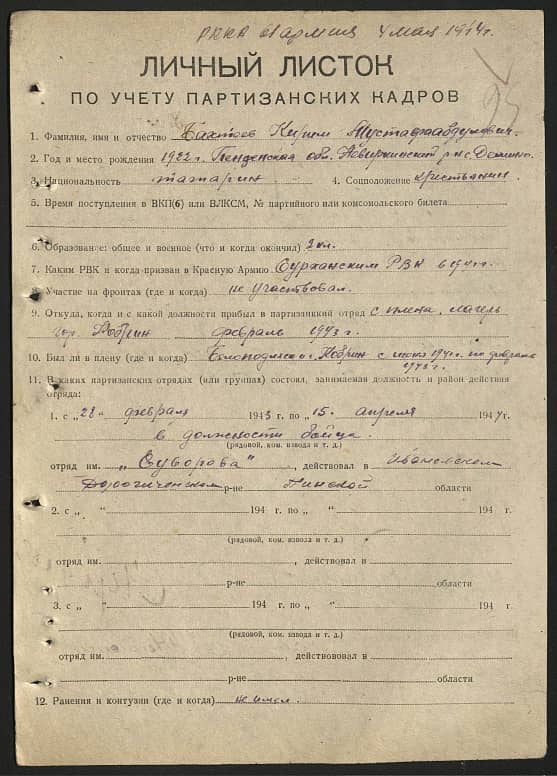 РККА 61 армия 4 мая 1944 г.
ЛИЧНЫЙ ЛИСТОК
ПО УЧЕТУ ПАРТИЗАНСКИХ КАДРОВ
1. Фамилия, имя и отчество Керим
2. Год и место рождения 1922 г. Пензенская обл. р-н с.
3. Национальность татарин 4. Соцположение крестьянин
5. Время поступления в ВКП(б) или ВЛКСМ, № партийного или комсомольского билета
6. Образование: общее и военное (что и когда окончил) 2 кл.
7. Каким РВК и когда призван в Красную Армию Сурханским РВК в 1941 г.
8. Участие на фронтах (где и когда) не участвовал.
9. Откуда, когда и с какой должности прибыл в партизанский отряд с плена, лагерь
гор. Кобрин февраль 1943 г.
10. Был ли в плену (где и когда) Кобрин с июня 1941 г. по февраль
1943 г.
11. В каких партизанских отрядах (или группах) состоял, занимаемая должность и район действия
отряда:
1. с „28" февраля 1943 г. по „15" апреля 1944 г.
в должности бойца.
(рядовой, ком. взвода и т. д.)
отряд им. „Суворова", действовал в Ивановском
Дорогиченском р-не Пинской области
2. с „ " 194 г. по „ " 194 г.
(рядовой, ком. взвода и т. д.)
отряд им. , действовал в
р-не области
3. с „ " 194 г. по „ " 194 г.
(рядовой, ком. взвода и т. д.)
отряд им. , действовал в
р-не области
12. Ранения и контузии (где и когда) не имел.